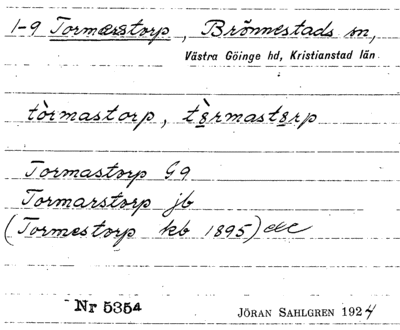 1-9 Tormarstorp, Brönnestads sn,
Västra Göinge hd, Kristianstad län
tòrmastorp, tòrmastorp
Tormastorp G9
Tormarstorp jb
(Tormestorp kb 1895)
Nr 5354
JÖRAN SAHLGREN 1924